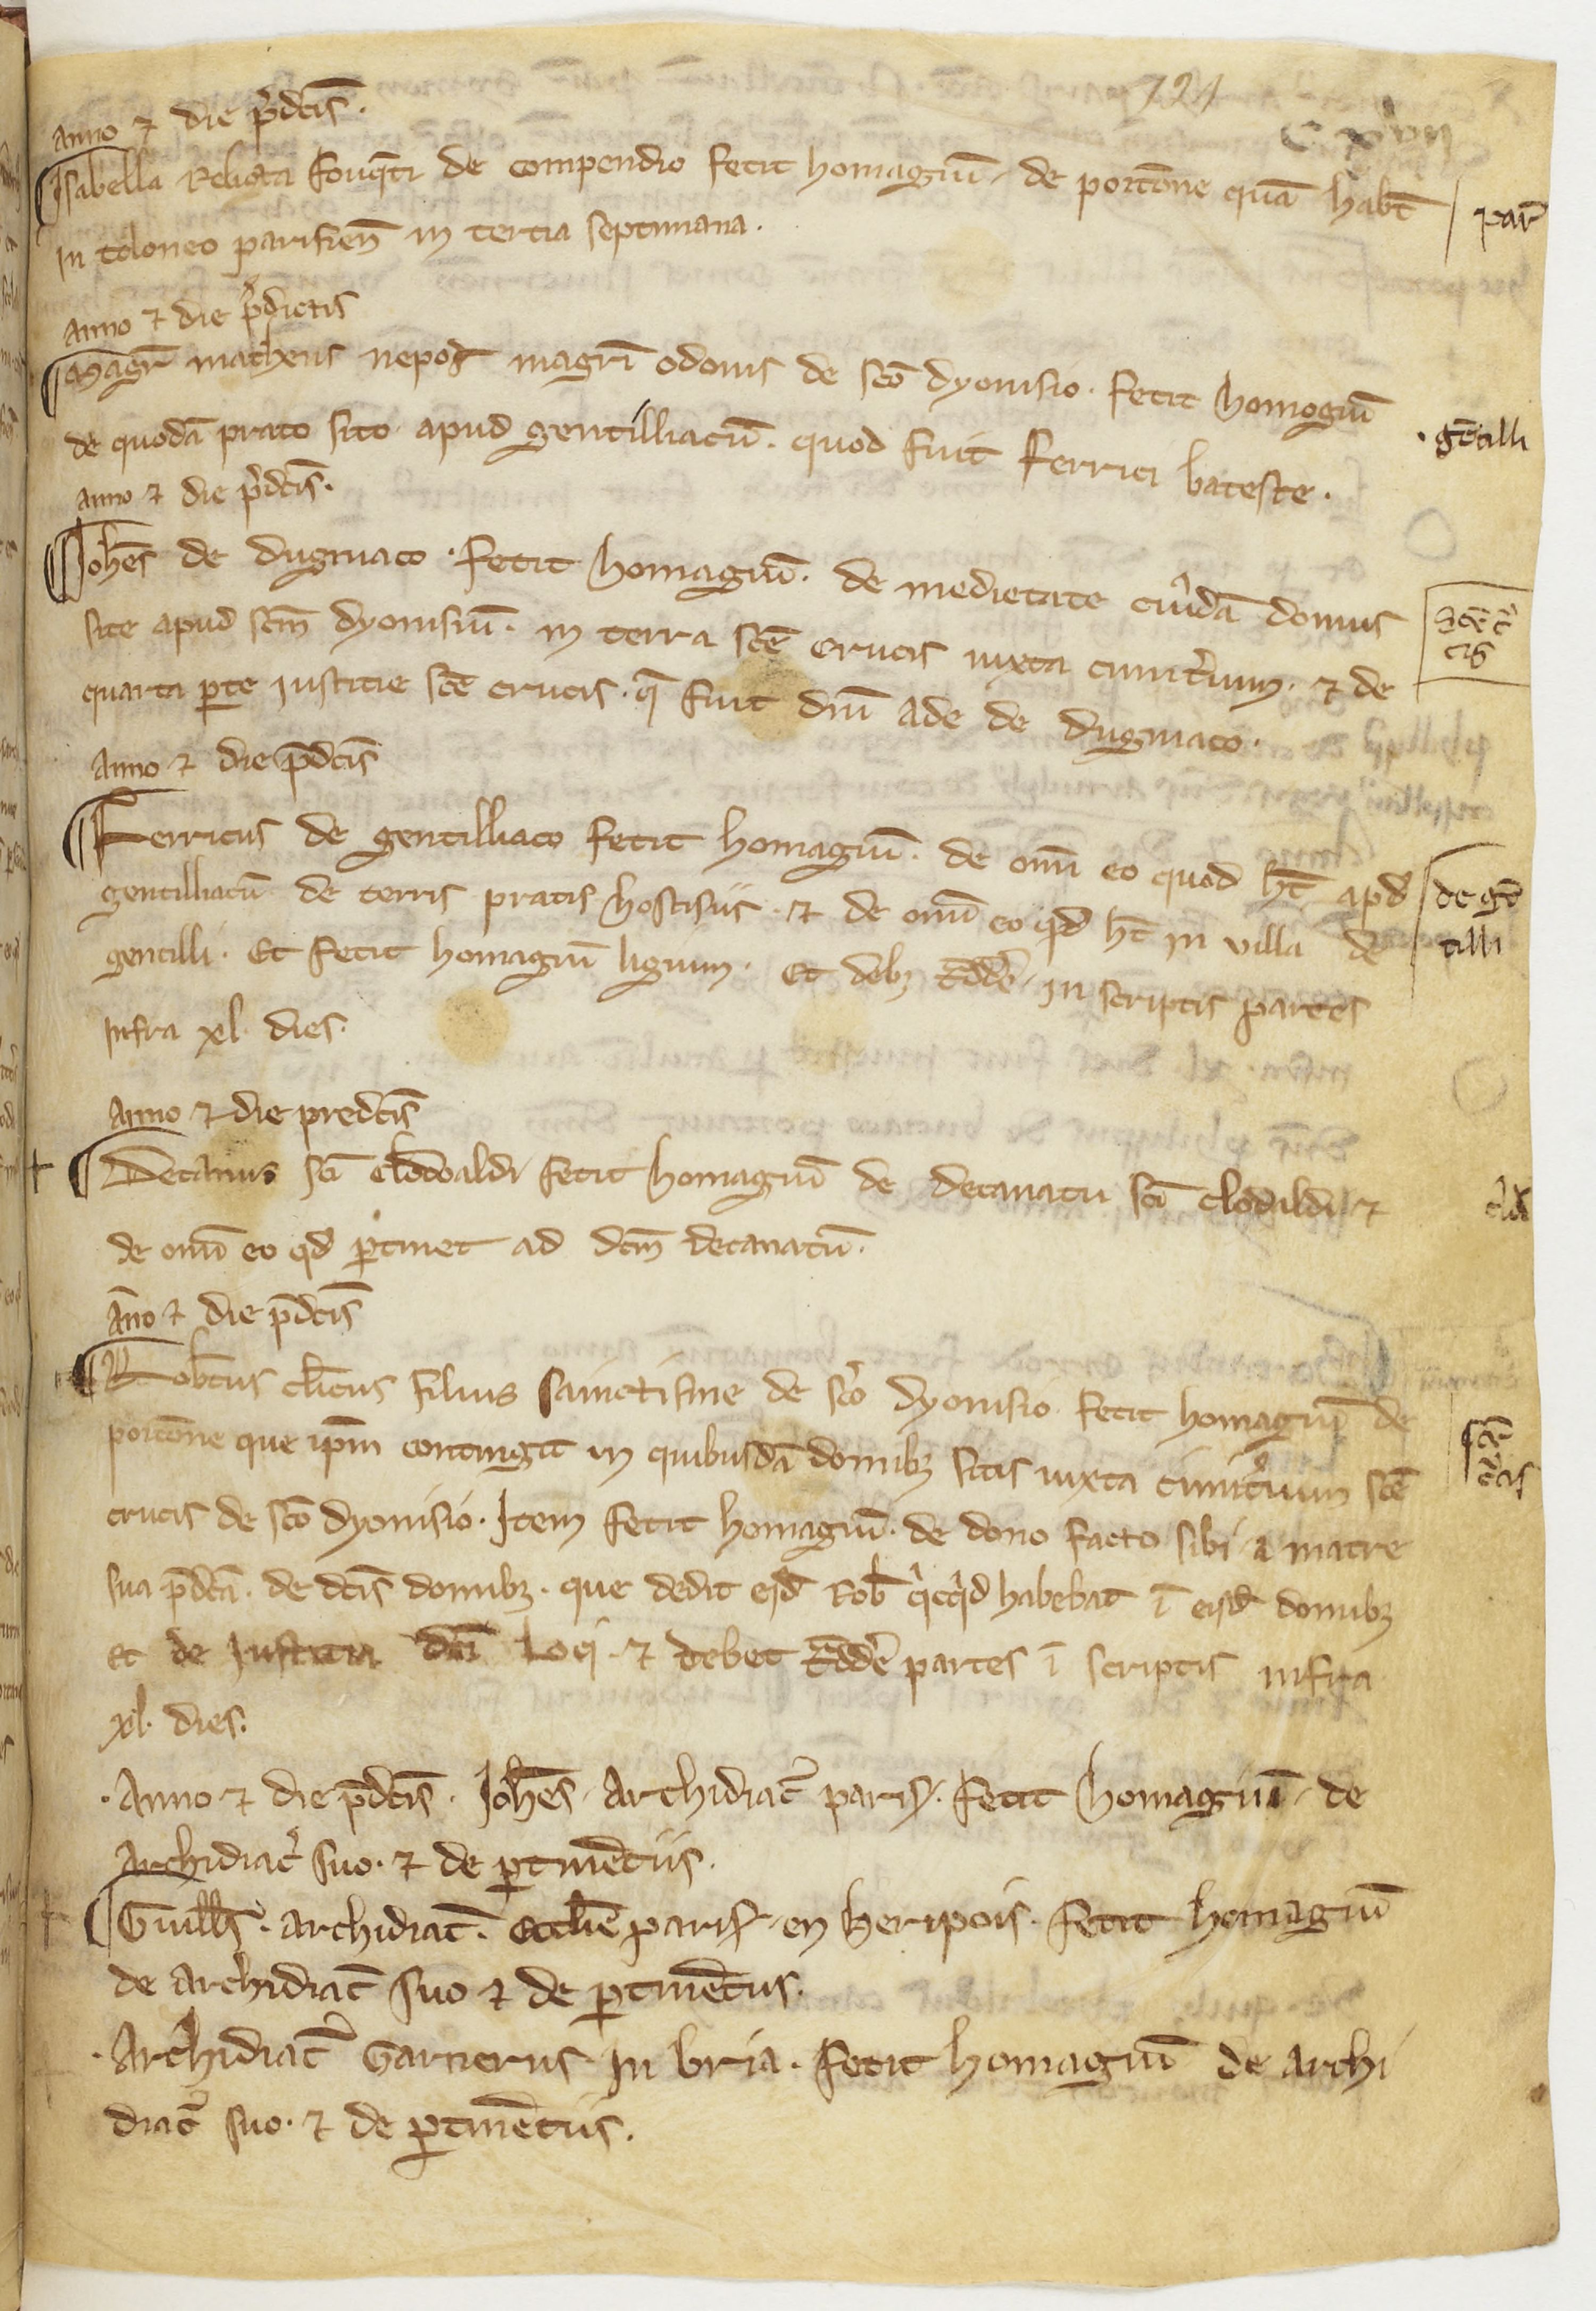 121
C xvii
Anno ⁊ die p̄dcīs.
Isabella Relicta fouq̄ti de compendio fecit homagiū. de portōne quā habt̄
in toloneo parisien̄ in tertia septimana.
par̄
Anno ⁊ die p̄dictis
Magr̄ matheus nepos magrī odonis de scō dyonisio. fecit homogiū
de quodā prato sito apud gentilliacū. quod fuit ferrici bateste.
. gētilli
Anno ⁊ die p̄dcīs.
Joh̄es de dugniaco. fecit homagiū. de medietate cuiꝰdā domus
site apud scm̄ dyonisiū. in terra scē crucis iuxta cimit̄ium. ⁊ de
quarta ꝑte iusticie scē crucis. q̄ fuit dn̄i Ade de dugniaco.
scē c̄
cis
Anno ⁊ die p̄dcīs
Ferricus de gentilliaco fecit homagiū. de om̄i eo quod ht̄ apd̄
gentilliacū de terris pratis hostisiis. ⁊ de om̄i eo qd̄ ht̄ in villa de
gentilli. Et fecit homagiū ligium. Et debꝫ r̄dde in scriptis partes
infra xl. dies.
de gē
tilli
Anno ⁊ die predcīs
Decanus scī clodoaldi fecit homagiū de decanatu scī clodaldi ⁊
de om̄i eo qd̄ ꝑtinet ad dcm̄ decanatū.
An̄o ⁊ die p̄dcīs
Robtus̄ clicus̄ filius sainctisme de scō dyonisio fecit homagiū de
portōne que ipm̄ contingit in quibusdā domibꝫ sitis iuxta cimit̄ium scē
crucis de scō dyonisio. Item fecit homagiū. de dono facto sibi a matre
sua p̄dcā. de dcīs domibꝫ. que dedit eid̄ Rob̄ q̄cq̄d habebat ī eisd̄ domibꝫ
Et de Iusticia dcī Loci. ⁊ debet r̄dde partes ī scriptis infra
xl. dies.
. Anno ⁊ die p̄dcīs. Joh̄es. Archidiac̄ paris̄. fecit homagiū. de
Archidiac̄ suo. ⁊ de ꝑtinētiis.
Guill̄s. archidiac̄. eccl̄ie paris̄. en heripois. fecit homagiū
de archidiac̄ suo ⁊ de ꝑtinētiis.
. Archidiac̄ Garnerus In bria. fecit homagiū de archi
diac̄ suo. ⁊ de ꝑtinētiis.